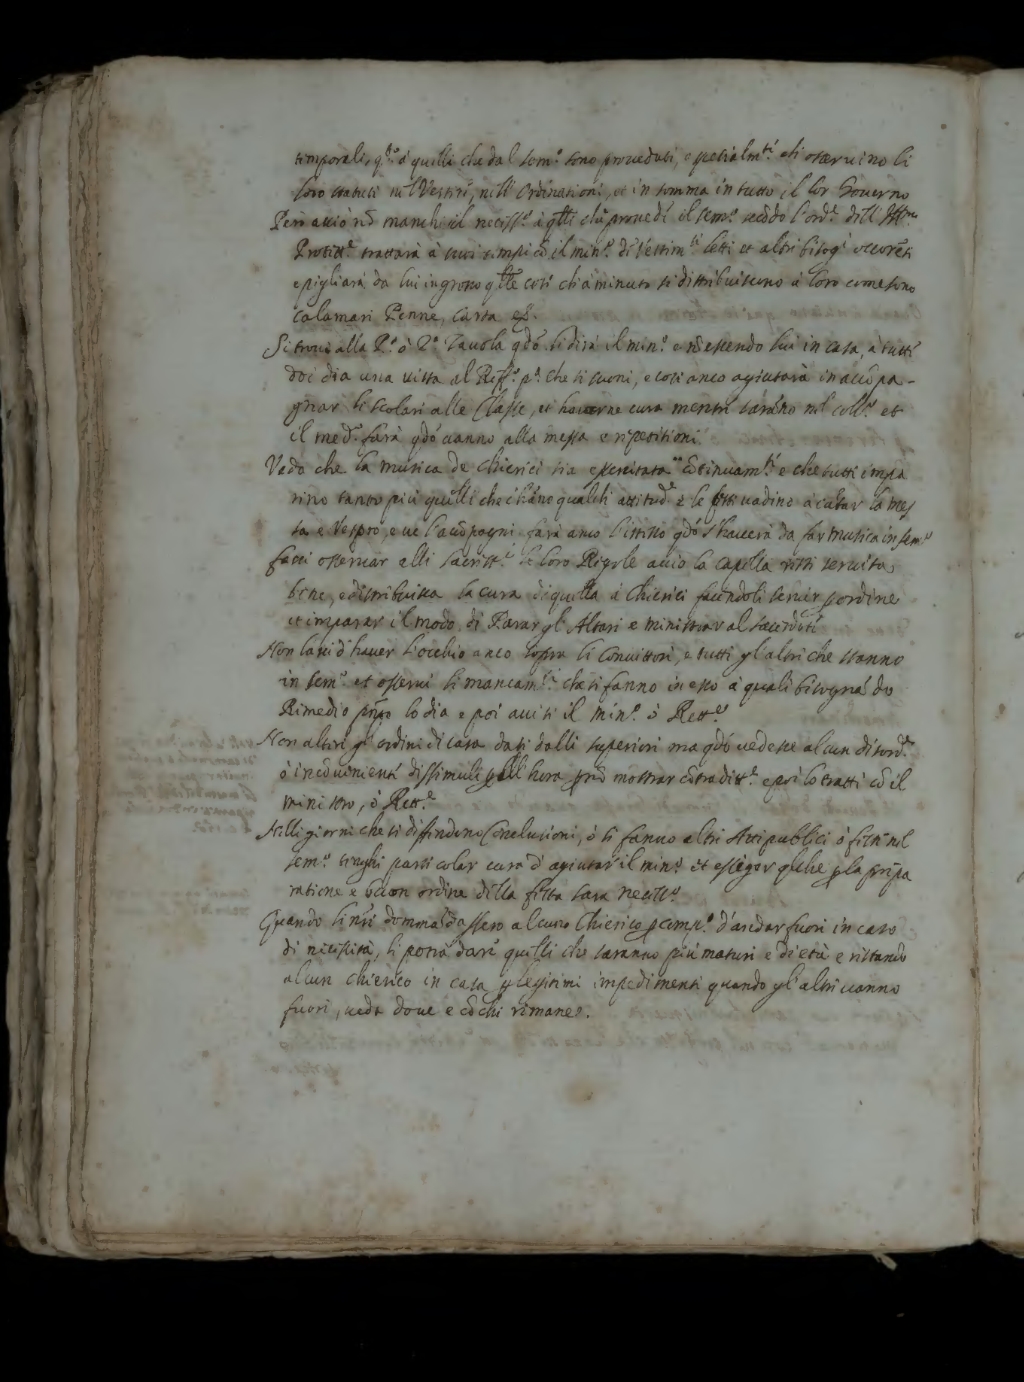 temporali, q.to à quelli che dal sem.o sono proueduti, e spetialm.te et osseruino li
loro statuti nel Vestire, nell' ordinationi, et in somma in tutto il lor Gouerno
Però acciò nō manchi il necess.o à q̄lli che prouede il sem.o secōdo l'ord.e dell' Ill.mo
Protett.e trattarà à suoi tempi cō il min.o di Vestim.ti letti et altri bisog.i occorēti
e pigliarà da lui in grosso q̄lle cose ch' à minuto si distribuiscono à loro come sono
calamari Penne, Carta &.
Si troui alla P.a ò 2.a Tauola q̄dō li dirà il min.o e nō essendo lui in casa, à tutti
doi dia una uista al Reff.o p.a che si suoni, e così anco agiutarà in accōpa-
gnar li scolari alle Classe, et hauerne cura mentre sarāno nel coll.o et
il med.o farà q̄dō uanno alla messa e ripetitioni
Veda che la musica de Chierici sia essercitata Cōtinuam.te e che tutti impa
rino tanto più quelli che ci hāno qualche attitud.e e le feste uadino à cātar la mes
sa e Vespro, e ue l'accōpagni farà anco l'istesso q̄dō s'hauerà da far musica in sem.o
facci osseruar alli sacrist.i le loro Regole acciò la capella resti seruita
bene, e distribuisca la cura di quella à Chierici facendoli seruir p ordine
et imparar il modo di Parar gl' Altari e ministrar al sacerdote
Non lassi d' hauer l'occhio anco sopra li Conuittori, e tutti gl' altri che stanno
in sem.o et osserui li mancam.ti che si fanno in esso à quali bisogna do
Rimedio p̄sto lo dia e poi auisi il min.o ò Rett.e
Non alteri gl' ordini di casa dati dalli superiori ma q̄dō uedesse alcun disord.e
ò incōueniente dissimuli p all' hora p nō mostrar cōtraditt.e e poi lo tratti cō il
ministro, ò Rett.e
Nelli giorni che si diffendono Conclusioni, ò si fanno altri Atti publici ò feste nel
sem.o tenghi particolar cura d' agiutar il min.o et esseguir q̄lche p la prepa
ratione e buon ordine della festa sara necess.o
Quando li n̄ri dommādassero alcuno Chierico p comp.o d' andar fuori in caso
di necessità, li potrà dare quelli che saranno più maturi e di età e restando
alcun chierico in casa p legitimi impedimenti quando gl' altri uanno
fuori, ueda doue e cō chi rimane.